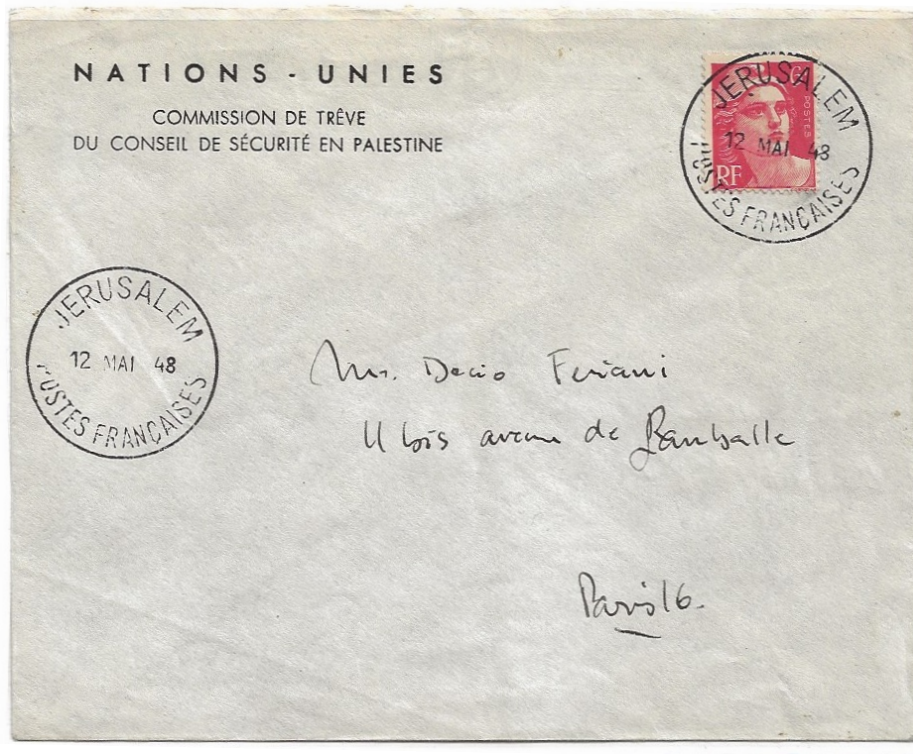 NATIONS - UNIES
COMMISSION DE TRÊVE
DU CONSEIL DE SÉCURITÉ EN PALESTINE
POSTES
RF
JERUSALEM
12 MAI 48
POSTES FRANÇAISES
JERUSALEM
12 MAI 48
POSTES FRANÇAISES
Mr. Decio Feriani
11 bis avenue de Lamballe
Paris 16.